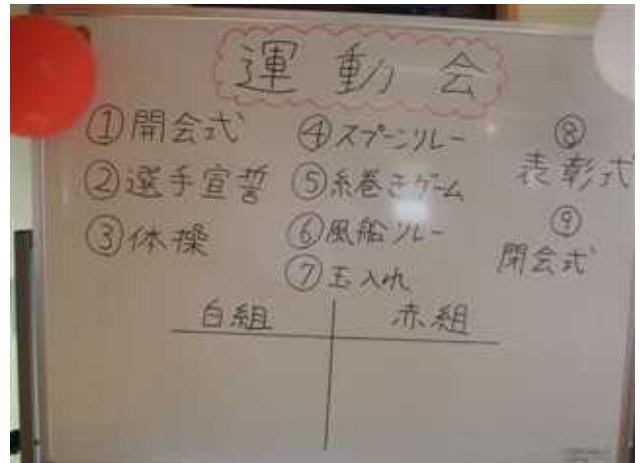 運動会
①開会式
②選手宣誓
③体操
④スプーンリレー
⑤糸巻きゲーム
⑥風船リレー
⑦玉入れ
⑧
表彰式
⑨
閉会式
白組 赤組